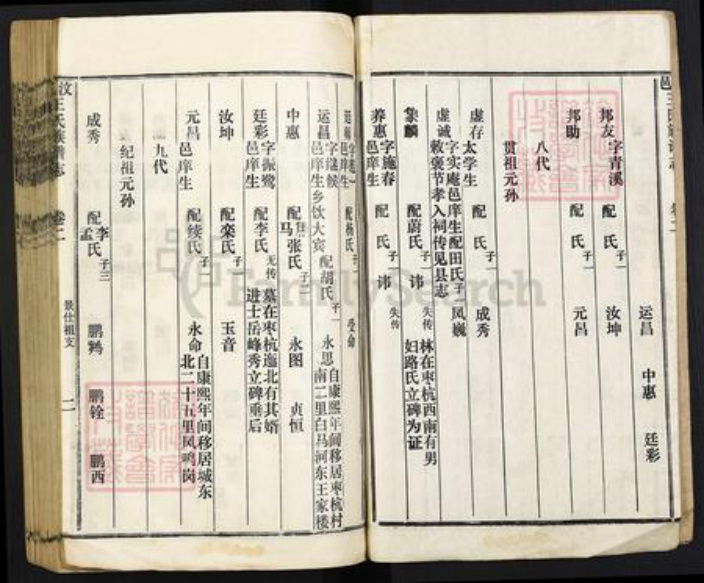 运昌 中惠 廷彩
邦友 字青溪 配 氏 子一 汝坤
邦助 配 氏 子一 元昌
八代
贯祖元孙
虚存 太学生 配 氏 子一 成秀
虚诚 字实庵邑庠生配田氏 子一 凤巍
敕褒节孝入祠传见县志
集麟 配蔚氏 子一 讳 失传 林在枣杭西南有男
妇路氏立碑为证
养惠 字施春 邑庠生 配 氏 子一 讳 失传
配杨氏 子一 受命
运昌 邑庠生乡饮大宾 配胡氏 子一 永思 自康熙年间移居枣杭村
南二里白马河东王家楼
中惠 配马张氏 子二 永图 贞恒
廷彩 字振鹭 邑庠生 配李氏 无传 墓在枣杭迤北有其婿
进士岳峰秀立碑垂后
汝坤 配栾氏 子一 玉音
元昌 邑庠生 配续氏 子一 永命 自康熙年间移居城东
北二十五里凤鸣岗
九代
纪祖元孙
成秀 配李孟氏 子三 鹏鹓 鹏铨 鹏西
汶王氏族谱志 卷二 景仕祖支 二
FamilySearch